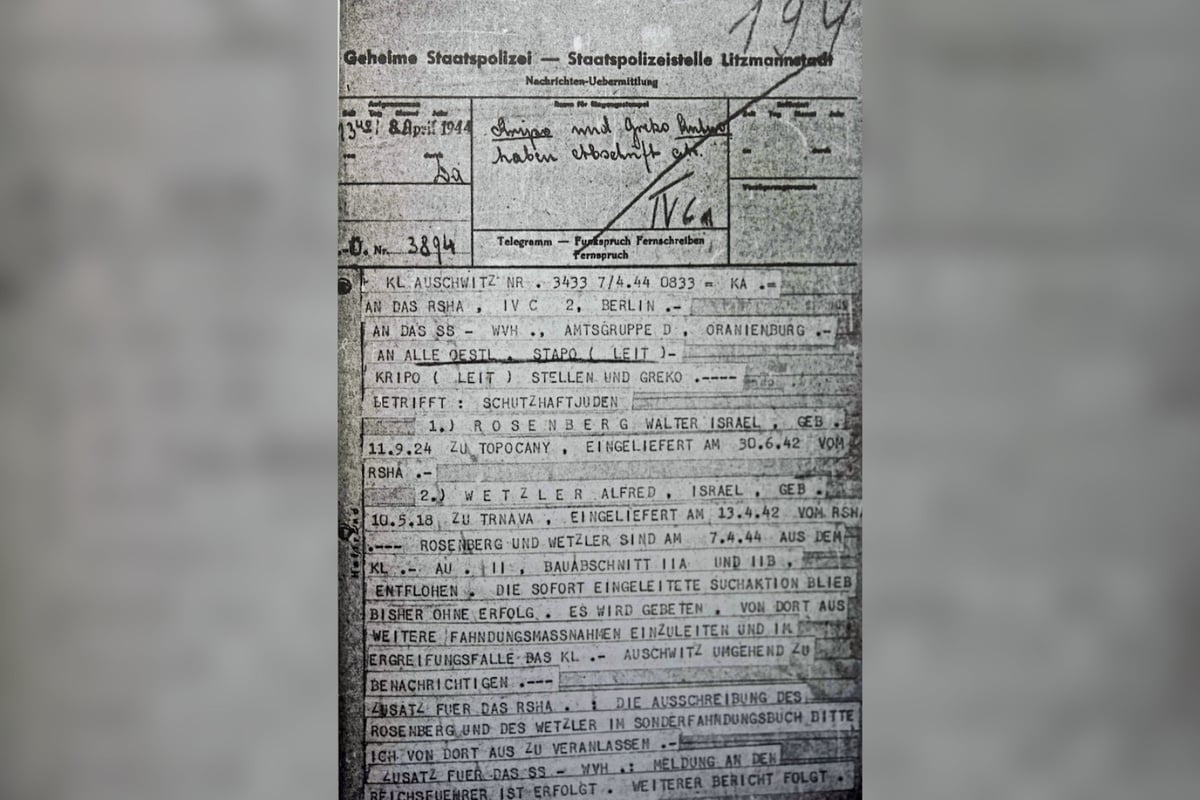 194
Geheime Staatspolizei — Staatspolizeistelle Litzmannstadt
Nachrichten-Uebermittlung
Aufgenommen
Zeit Tag Monat Jahr
Raum für Eingangsstempel
Befördert
Zeit Tag Monat Jahr
1348 8. April 1944
von durch
an durch
Kripo und Greko
haben Abschrift
Verzögerungsvermerk
IV 6a
Nr. 3894
Telegramm — Funkspruch Fernschreiben
Fernspruch
KL AUSCHWITZ NR . 3433 7/4.44 0833 = KA .=
AN DAS RSHA , IV C 2, BERLIN .-
AN DAS SS - WVH ., AMTSGRUPPE D , ORANIENBURG .-
AN ALLE OESTL . STAPO ( LEIT )-
KRIPO ( LEIT ) STELLEN UND GREKO .----
BETRIFFT : SCHUTZHAFTJUDEN
1.) R O S E N B E R G WALTER ISRAEL , GEB .
11.9.24 ZU TOPOCANY , EINGELIEFERT AM 30.6.42 VOM
RSHA .-
2.) W E T Z L E R ALFRED , ISRAEL , GEB .
10.5.18 ZU TRNAVA , EINGELIEFERT AM 13.4.42 VOM RSHA
.--- ROSENBERG UND WETZLER SIND AM 7.4.44 AUS DEM
KL .- AU . II , BAUABSCHNITT IIA UND IIB ,
ENTFLOHEN . DIE SOFORT EINGELEITETE SUCHAKTION BLIEB
BISHER OHNE ERFOLG . ES WIRD GEBETEN , VON DORT AUS
WEITERE FAHNDUNGSMASSNAHMEN EINZULEITEN UND IM
ERGREIFUNGSFALLE DAS KL .- AUSCHWITZ UMGEHEND ZU
BENACHRICHTIGEN .---
ZUSATZ FUER DAS RSHA . : DIE AUSSCHREIBUNG DES
ROSENBERG UND DES WETZLER IM SONDERFAHNDUNGSBUCH BITTE
ICH VON DORT AUS ZU VERANLASSEN .-
ZUSATZ FUER DAS SS - WVH .: MELDUNG AN DEN
REICHSFUEHRER IST ERFOLGT . WEITERER BERICHT FOLGT .